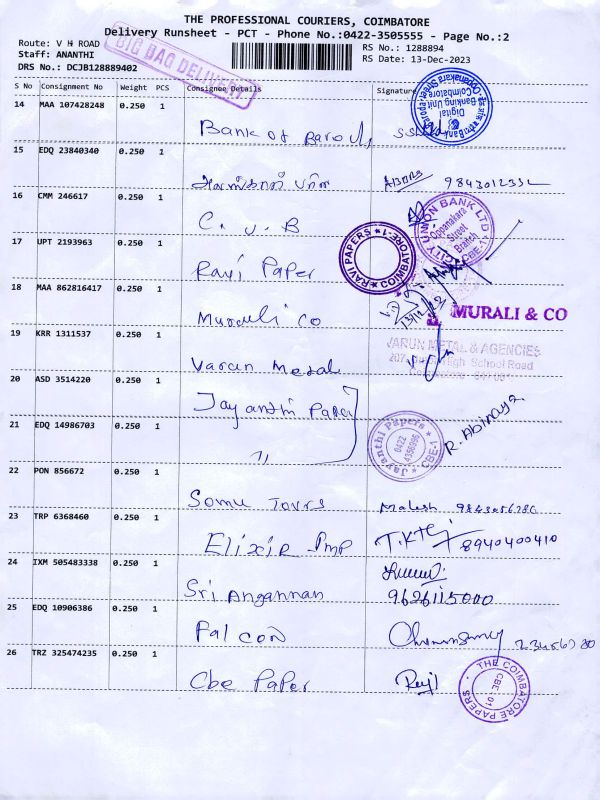 THE PROFESSIONAL COURIERS, COIMBATORE
Delivery Runsheet - PCT - Phone No.:0422-3505555 - Page No.:2
Route: V H ROAD
Staff: ANANTHI
DRS No.: DCJB128889402
BIG BAG DELIVERY
RS No.: 1288894
RS Date: 13-Dec-2023
S No Consignment No Weight PCS Consignee Details Signature
14 MAA 107428248 0.250 1
Bank of Baroda
Digital
Banking Unit
Coimbatore
15 EDQ 23840340 0.250 1
16 CMM 246617 0.250 1
C. U. B
CITY UNION BANK LTD.
Oppanakara
Street
Branch
CBE-1
17 UPT 2193963 0.250 1
Ravi Paper
RAVI PAPERS
COIMBATORE-1
18 MAA 862816417 0.250 1
Murali Co
MURALI & CO
19 KRR 1311537 0.250 1
Varun Metal
VARUN METAL & AGENCIES
High School Road
20 ASD 3514220 0.250 1
Jayanthi Paper
21 EDQ 14986703 0.250 1
"
Jayanthi Papers
0422
4356996
CBE-1
R. Abinaya
22 PON 856672 0.250 1
Somu Tours
Malesh
23 TRP 6368460 0.250 1
Elixir Imp
8940400410
24 IXM 505483338 0.250 1
Sri Angannan
9626115000
25 EDQ 10906386 0.250 1
Falcon
26 TRZ 325474235 0.250 1
Cbe Paper
THE COIMBATORE PAPERS
CBE - 01